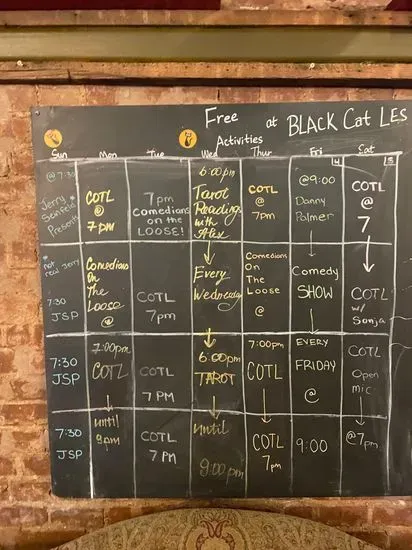 Free at BLACK Cat LES
Activities
Sun Mon Tue Wed Thur Fri Sat
@ 7:30
Jerry
Seinfeld*
Presents
COTL
@
7 pm
7pm
Comedians
on the
LOOSE!
6:00pm
Tarot
Readings
with Alex
COTL
@
7pm
@9:00
Danny
Palmer
COTL
@
7
* not
real Jerry
7:30
JSP
Comedians
On
The
Loose
@
COTL
7pm
Every
Wednesday
Comedians
On
The
Loose
@
Comedy
SHOW
COTL
w/
Sonja
7:30
JSP
7:00pm
COTL
COTL
7 PM
6:00pm
TAROT
7:00pm
COTL
EVERY
FRIDAY
@
COTL
Open
Mic
7:30
JSP
until
9pm
COTL
7 PM
until
9:00pm
COTL
7pm
9:00
@7pm